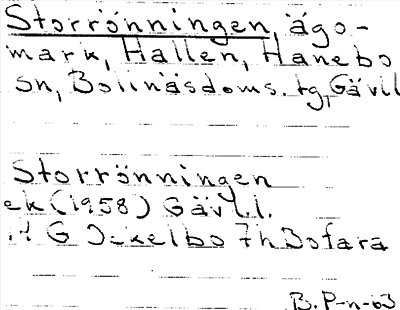 Storrönningen, ägo-
mark, Hallen, Hanebo
sn, Bollnäsdoms. tg, Gävl
Storrönningen
ek (1958) Gävl.l.
G Ockelbo 7h Bofara
B. P-n-63